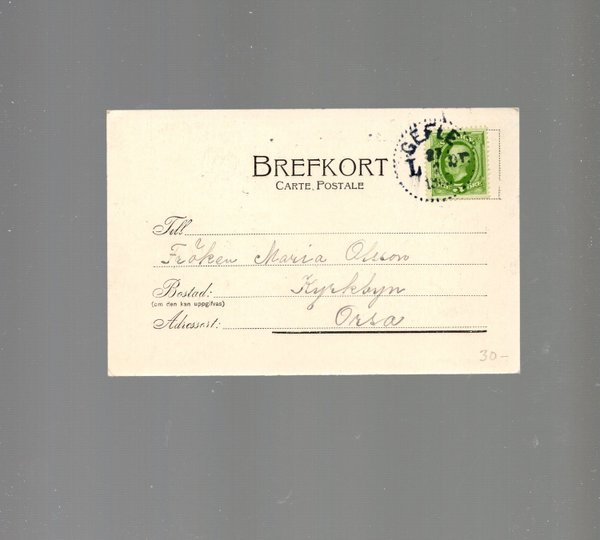 BREFKORT
CARTE POSTALE
GEFLE
Till
Fröken Maria Olsson
Bostad: Kyrkbyn
(om den kan uppgifvas)
Adressort: Orsa
30-